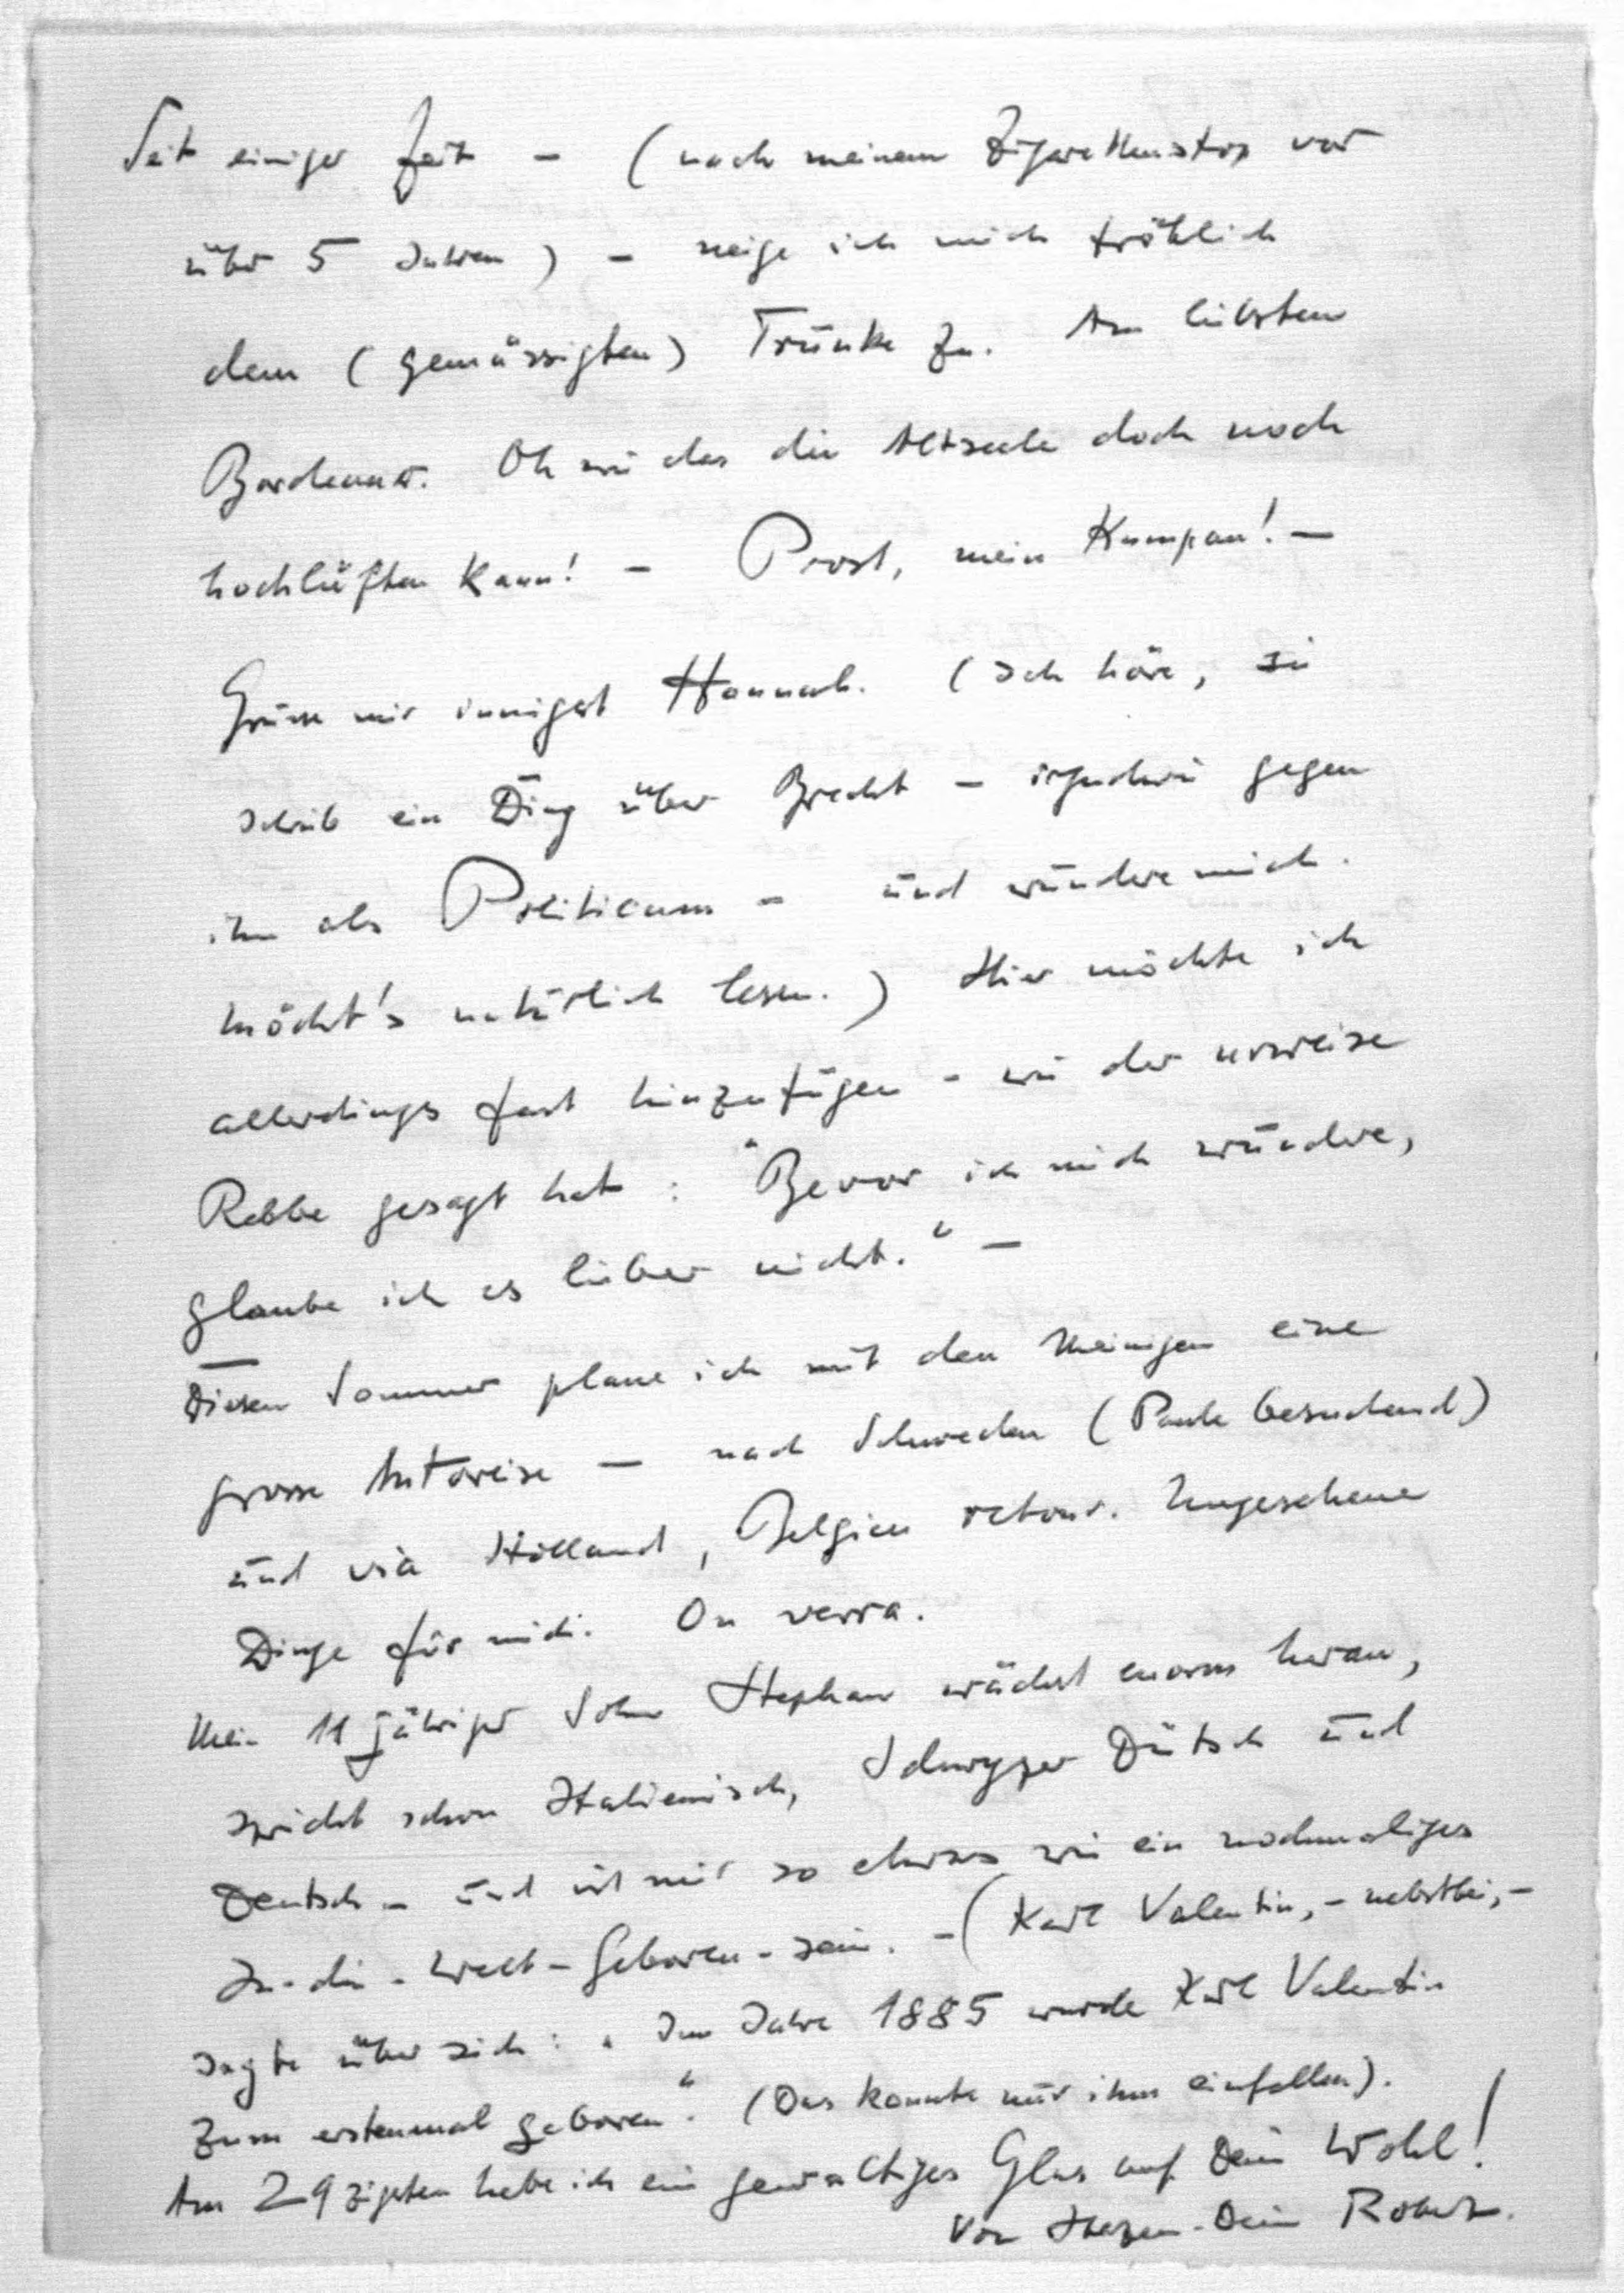 Seit einiger Zeit – (nach meinem Zigarettenstop vor
über 5 Jahren) – neige ich mich fröhlich
dem (gemässigten) Trunke zu. Am liebsten
Bordeaux. Oh wie das die Altseele doch noch
hochlüften kann! – Prost, mein Kumpan! –
Grüsse mir innigst Hannah. (Ich höre, sie
schrieb ein Ding über Brecht – irgendwie gegen
ihn als Politicum – und wundre mich.
Möcht's natürlich lesen.) Hier möchte ich
allerdings fast hinzufügen – wie der urweise
Rebbe gesagt hat: "Bevor ich mich wundre,
glaube ich es lieber nicht." –
Diesen Sommer plane ich mit den Meinigen eine
grosse Autoreise – nach Schweden (Paule besuchend)
und via Holland, Belgien retour. Ungesehene
Dinge für mich. On verra.
Mein 11 jähriger Sohn Stephan wächst enorm heran,
spricht schon Italienisch, Schwyzer Dütsch und
Deutsch – und ist mir so etwas wie ein nochmaliges
In-die-Welt-Geboren-sein. – (Karl Valentin, – nebstbei, –
sagte über sich: "Im Jahre 1885 wurde Karl Valentin
zum erstenmal geboren". (Das konnte nur ihm einfallen).
Am 29zigsten hebe ich ein gewaltiges Glas auf Dein Wohl!
Von Herzen – Dein Robert.